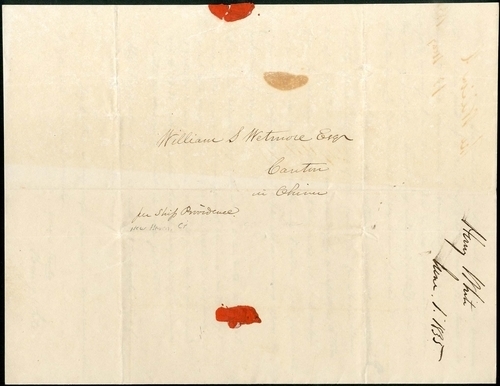 William S Wetmore Esqr
Canton
in China
per Ship Providence
Henry White
1. 1835